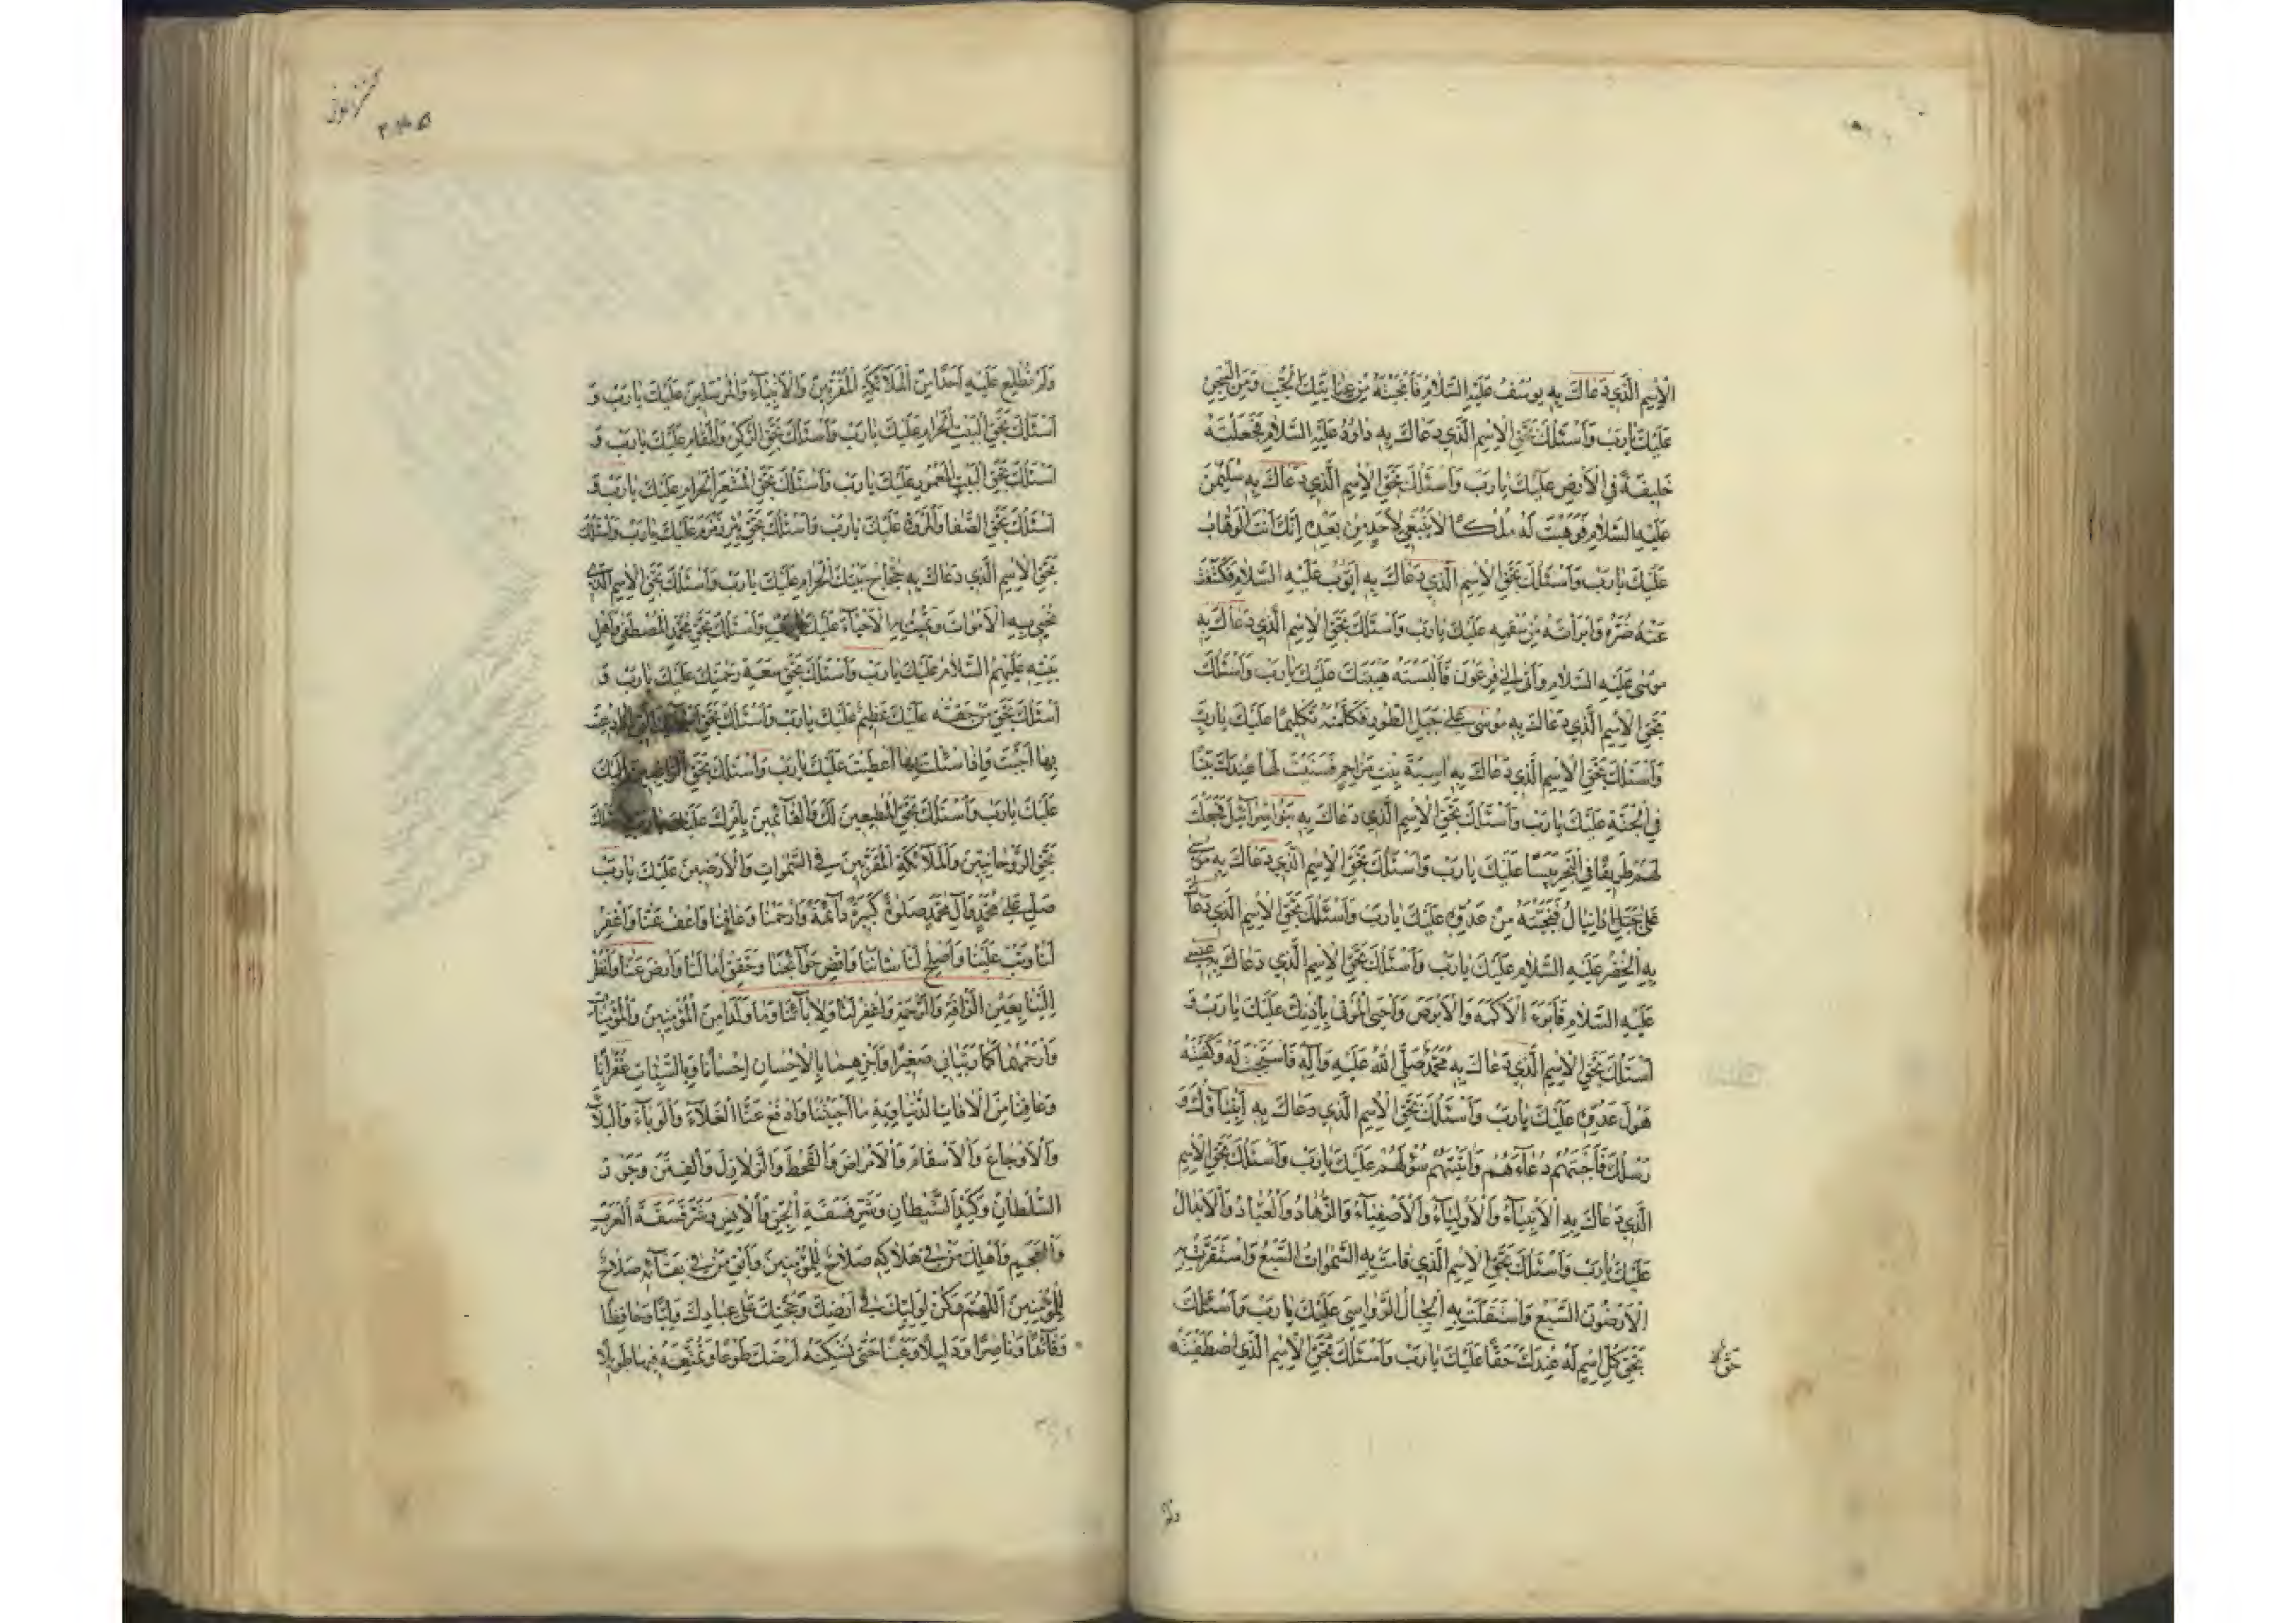 الْاِسْمِ الَّذي دَعَاكَ بِهِ يُوسُفُ عَلَيْهِ السَّلامُ فَاَنْجَيْتَهُ مِنْ غَيابَتِكَ الْجُبِّ وَمِنَ السِّجْنِ
عَلَيْكَ يا رَبِّ وَاَسْئَلُكَ بِحَقِّ الْاِسْمِ الَّذي دَعَاكَ بِهِ داوُدُ عَلَيْهِ السَّلامُ فَجَعَلْتَهُ
خَليفَةً فِي الْاَرْضِ عَلَيْكَ يا رَبِّ وَاَسْئَلُكَ بِحَقِّ الْاِسْمِ الَّذي دَعَاكَ بِهِ سُلَيْمٰنُ
عَلَيْهِ السَّلامُ فَوَهَبْتَ لَهُ مُلْكًا لا يَنْبَغي لِاَحَدٍ مِنْ بَعْدِهِ اِنَّكَ اَنْتَ الْوَهّابُ
عَلَيْكَ يا رَبِّ وَاَسْئَلُكَ بِحَقِّ الْاِسْمِ الَّذي دَعَاكَ بِهِ اَيُّوبُ عَلَيْهِ السَّلامُ فَكَشَفْتَ
عَنْهُ ضُرَّهُ وَاَبْرَأْتَهُ مِنْ سُقْمِهِ عَلَيْكَ يا رَبِّ وَاَسْئَلُكَ بِحَقِّ الْاِسْمِ الَّذي دَعَاكَ بِهِ
مُوسٰى عَلَيْهِ السَّلامُ وَاَتٰى اِلٰى فِرْعَوْنَ فَاَلْبَسْتَهُ هَيْبَتَكَ عَلَيْكَ يا رَبِّ وَاَسْئَلُكَ
بِحَقِّ الْاِسْمِ الَّذي دَعَاكَ بِهِ مُوسٰى عَلٰى جَبَلِ الطُّورِ فَكَلَّمْتَهُ تَكْليمًا عَلَيْكَ يا رَبِّ
وَاَسْئَلُكَ بِحَقِّ الْاِسْمِ الَّذي دَعَاكَ بِهِ اسِيَةُ بِنْتُ مُزاحِمٍ فَبَنَيْتَ لَها عِنْدَكَ بَيْتًا
فِي الْجَنَّةِ عَلَيْكَ يا رَبِّ وَاَسْئَلُكَ بِحَقِّ الْاِسْمِ الَّذي دَعَاكَ بِهِ بَنُو اِسْرآئيلَ فَجَعَلْتَ
لَهُمْ طَريقًا فِي الْبَحْرِ يَبَسًا عَلَيْكَ يا رَبِّ وَاَسْئَلُكَ بِحَقِّ الْاِسْمِ الَّذي دَعَاكَ بِهِ مُوسٰى
عَلٰى جَبَلِ دانِيالَ فَنَجَّيْتَهُ مِنْ عَدُوِّهِ عَلَيْكَ يا رَبِّ وَاَسْئَلُكَ بِحَقِّ الْاِسْمِ الَّذي دَعَاكَ
بِهِ الْخِضْرُ عَلَيْهِ السَّلامُ عَلَيْكَ يا رَبِّ وَاَسْئَلُكَ بِحَقِّ الْاِسْمِ الَّذي دَعَاكَ بِهِ عيسٰى
عَلَيْهِ السَّلامُ فَاَبْرَءَ الْاَكْمَهَ وَالْاَبْرَصَ وَاَحْيَى الْمَوْتٰى بِاِذْنِكَ عَلَيْكَ يا رَبِّ وَ
اَسْئَلُكَ بِحَقِّ الْاِسْمِ الَّذي دَعَاكَ بِهِ مُحَمَّدٌ صَلَّى اللّٰهُ عَلَيْهِ وَآلِهِ فَاسْتَجَبْتَ لَهُ وَكَفَيْتَهُ
هَوْلَ عَدُوِّهِ عَلَيْكَ يا رَبِّ وَاَسْئَلُكَ بِحَقِّ الْاِسْمِ الَّذي دَعَاكَ بِهِ اَنْبِيآؤُكَ وَ
رُسُلُكَ فَاَجَبْتَهُمْ دُعآءَهُمْ وَاٰتَيْتَهُمْ سُؤْلَهُمْ عَلَيْكَ يا رَبِّ وَاَسْئَلُكَ بِحَقِّ الْاِسْمِ
الَّذي دَعَاكَ بِهِ الْاَنْبِيآءُ وَالْاَوْلِيآءُ وَالْاَصْفِيآءُ وَالزُّهّادُ وَالْعُبّادُ وَالْاَبْدالُ
عَلَيْكَ يا رَبِّ وَاَسْئَلُكَ بِحَقِّ الْاِسْمِ الَّذي قامَتْ بِهِ السَّمٰواتُ السَّبْعُ وَاسْتَقَرَّتْ بِهِ
الْاَرَضُونَ السَّبْعُ وَاسْتَقَلَّتْ بِهِ الْجِبالُ الرَّواسي عَلَيْكَ يا رَبِّ وَاَسْئَلُكَ
بِحَقِّ كُلِّ اسْمٍ لَهُ عِنْدَكَ حَقًّا عَلَيْكَ يا رَبِّ وَاَسْئَلُكَ بِحَقِّ الْاِسْمِ الَّذي اصْطَفَيْتَهُ
وَلَمْ
وَلَمْ تُطْلِعْ عَلَيْهِ اَحَدًا مِنَ الْمَلآئِكَةِ الْمُقَرَّبينَ وَالْاَنْبِيآءِ وَالْمُرْسَلينَ عَلَيْكَ يا رَبِّ وَ
اَسْئَلُكَ بِحَقِّ الْبَيْتِ الْحَرامِ عَلَيْكَ يا رَبِّ وَاَسْئَلُكَ بِحَقِّ الرُّكْنِ وَالْمَقامِ عَلَيْكَ يا رَبِّ وَ
اَسْئَلُكَ بِحَقِّ الْبَيْتِ الْمَعْمُورِ عَلَيْكَ يا رَبِّ وَاَسْئَلُكَ بِحَقِّ الْمَشْعَرِ الْحَرامِ عَلَيْكَ يا رَبِّ وَ
اَسْئَلُكَ بِحَقِّ الصَّفا وَالْمَرْوَةِ عَلَيْكَ يا رَبِّ وَاَسْئَلُكَ بِحَقِّ بِئْرِ زَمْزَمَ عَلَيْكَ يا رَبِّ وَاَسْئَلُكَ
بِحَقِّ الْاِسْمِ الَّذي دَعَاكَ بِهِ حُجّاجُ بَيْتِكَ الْحَرامِ عَلَيْكَ يا رَبِّ وَاَسْئَلُكَ بِحَقِّ الْاِسْمِ الَّذي
تُحْيي بِهِ الْاَمْواتَ وَتُميتُ بِهِ الْاَحْيآءَ عَلَيْكَ يا رَبِّ وَاَسْئَلُكَ بِحَقِّ مُحَمَّدٍ الْمُصْطَفٰى وَاَهْلِ
بَيْتِهِ عَلَيْهِمُ السَّلامُ عَلَيْكَ يا رَبِّ وَاَسْئَلُكَ بِحَقِّ سَعَةِ رَحْمَتِكَ عَلَيْكَ يا رَبِّ وَ
اَسْئَلُكَ بِحَقِّ مَنْ حَقُّهُ عَلَيْكَ عَظيمٌ عَلَيْكَ يا رَبِّ وَاَسْئَلُكَ بِحَقِّ
بِها اَجَبْتَ وَاِذا سُئِلْتَ بِها اَعْطَيْتَ عَلَيْكَ يا رَبِّ وَاَسْئَلُكَ بِحَقِّ
عَلَيْكَ يا رَبِّ وَاَسْئَلُكَ بِحَقِّ الْمُطيعينَ لَكَ وَالْقآئِمينَ بِاَمْرِكَ عَلَيْكَ يا رَبِّ
بِحَقِّ الرُّوحانِيّينَ وَالْمَلآئِكَةِ الْمُقَرَّبينَ فِي السَّمٰواتِ وَالْاَرَضينَ عَلَيْكَ يا رَبِّ
صَلِّ عَلٰى مُحَمَّدٍ وَآلِ مُحَمَّدٍ صَلٰوةً كَثيرَةً دآئِمَةً وَارْحَمْنا وَعافِنا وَاعْفُ عَنّا وَاغْفِرْ
لَنا وَتُبْ عَلَيْنا وَاَصْلِحْ لَنا شَأْنَنا وَاقْضِ حَوآئِجَنا وَحَقِّقْ اٰمالَنا وَارْضَ عَنّا وَانْظُرْ
اِلَيْنا بِعَيْنِ الرَّأْفَةِ وَالرَّحْمَةِ وَاغْفِرْ لَنا وَلِاٰبآئِنا وَما وَلَدا مِنَ الْمُؤْمِنينَ وَالْمُؤْمِناتِ
وَارْحَمْهُما كَما رَبَّياني صَغيرًا وَاجْزِهِما بِالْاِحْسانِ اِحْسانًا وَبِالسَّيِّئاتِ غُفْرانًا
وَعافِنا مِنَ الْاٰفاتِ الدُّنْياوِيَّةِ ما اَحْيَيْتَنا وَادْفَعْ عَنَّا الْغَلآءَ وَالْوَبآءَ وَالْبَلآءَ
وَالْاَوْجاعَ وَالْاَسْقامَ وَالْاَمْراضَ وَالْقَحْطَ وَالزَّلازِلَ وَالْفِتَنَ وَجَوْرَ
السُّلْطانِ وَكَيْدَ الشَّيْطانِ وَشَرَّ فَسَقَةِ الْجِنِّ وَالْاِنْسِ وَشَرَّ فَسَقَةِ الْعَرَبِ
وَالْعَجَمِ وَاَهْلِكْ مَنْ في هَلاكِهِ صَلاحٌ لِلْمُؤْمِنينَ وَاَبْقِ مَنْ في بَقآئِهِ صَلاحٌ
لِلْمُؤْمِنينَ اَللّٰهُمَّ وَكُنْ لِوَلِيِّكَ في اَرْضِكَ وَحُجَّتِكَ عَلٰى عِبادِكَ وَلِيًّا وَحافِظًا
وَقآئِدًا وَناصِرًا وَدَليلًا وَعَيْنًا حَتّٰى تُسْكِنَهُ اَرْضَكَ طَوْعًا وَتُمَتِّعَهُ فيها طَويلًا